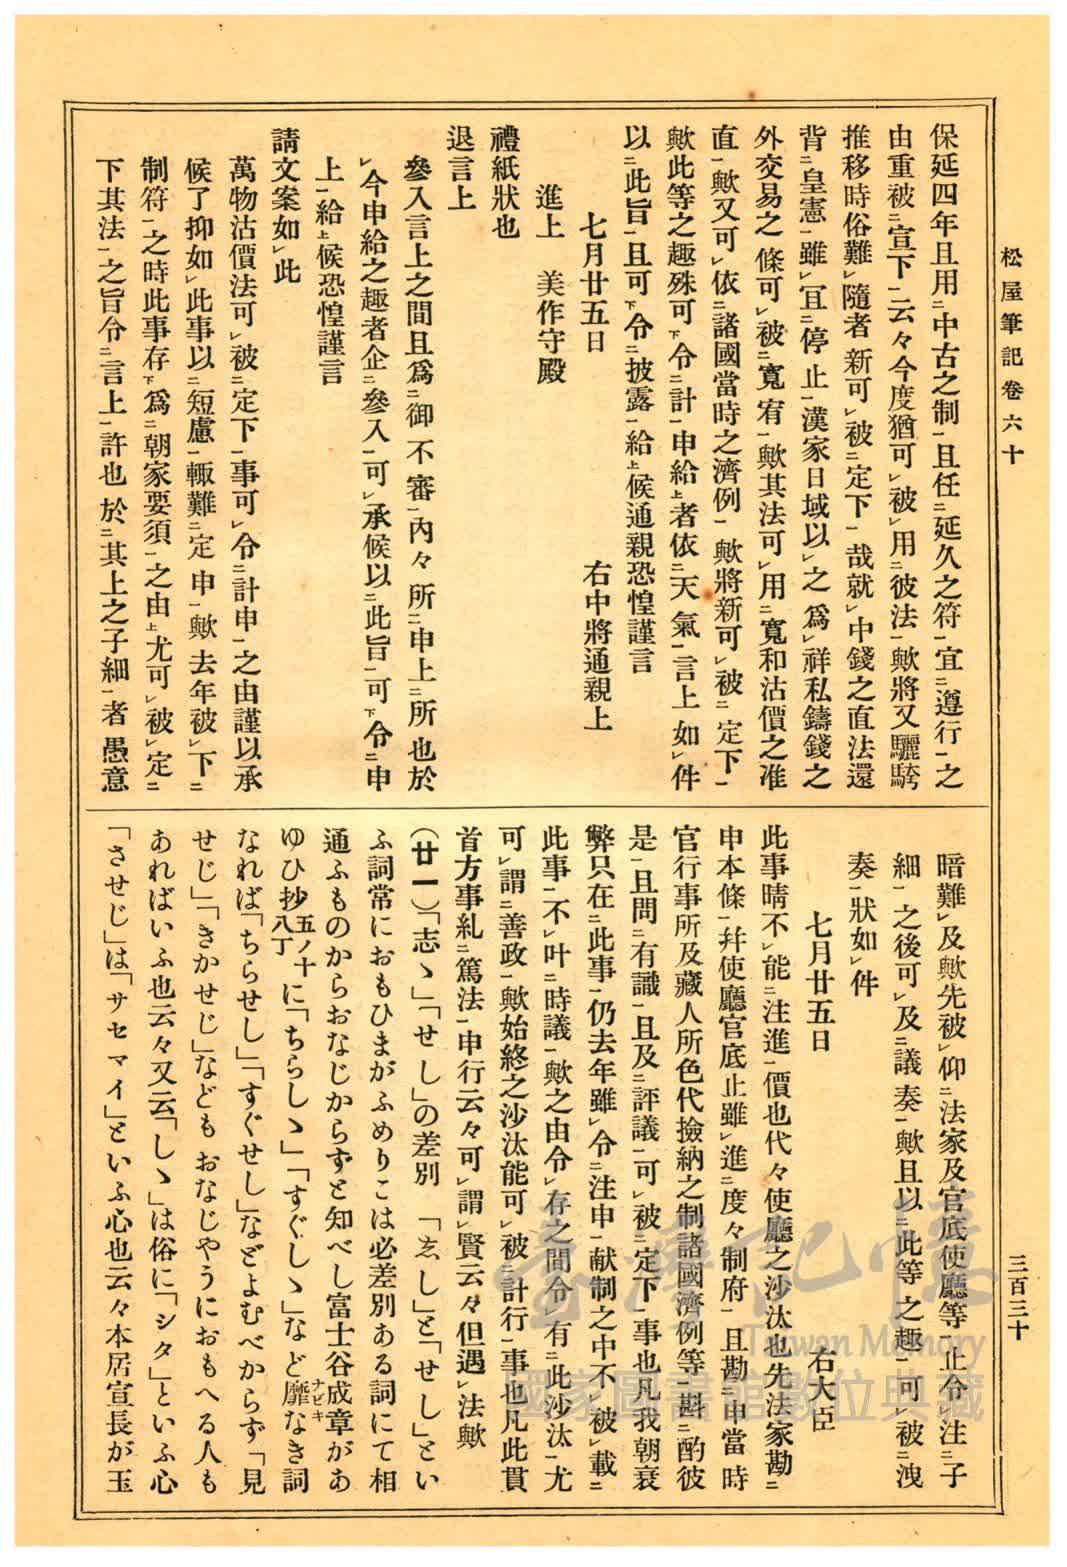 松屋筆記卷六十
三百三十
保延四年且用ニ中古之制一且任ニ延久之符一宜ニ遵行一之
由重被ニ宣下一云々今度猶可レ被レ用ニ彼法一歟將又驪騎
推移時俗難レ隨者新可レ被ニ定下一哉就レ中錢之直法還
背ニ皇憲一雖レ宜ニ停止一漢家日域以レ之爲レ祥私鑄錢之
外交易之條可レ被ニ寬宥一歟其法可レ用ニ寬和沽價之准
直一歟又可レ依ニ諸國當時之濟例一歟將新可レ被ニ定下一
歟此等之趣殊可下令ニ計一申給上者依ニ天氣一言上如レ件
以ニ此旨一且可下令ニ披露一給上候通親恐惶謹言
七月廿五日　右中將通親上
進上　美作守殿
禮紙狀也
退言上
參入言上之間且爲ニ御不審一內々所ニ申上ニ所也於
レ今申給之趣者企ニ參入一可レ承候以ニ此旨一可下令ニ申
上一給上候恐惶謹言
請文案如レ此
萬物沽價法可レ被ニ定下一事可レ令ニ計申一之由謹以承
候了抑如レ此事以ニ短慮一輙難ニ定申一歟去年被レ下ニ
制符一之時此事存下爲ニ朝家要須一之由上尤可レ被レ定ニ
下其法一之旨令ニ言上一許也於ニ其上之子細一者愚意
暗難レ及歟先被レ仰ニ法家及官底使廳等一止令レ注ニ子
細一之後可レ及ニ議奏一歟且以ニ此等之趣一可レ被ニ洩
奏一狀如レ件
七月廿五日　右大臣
此事晴不レ能ニ注進一價也代々使廳之沙汰也先法家勘ニ
申本條一幷使廳官底止雖レ進ニ度々制府一且勘ニ申當時
官行事所及藏人所色代撿納之制諸國濟例等一斟ニ酌彼
是一且問ニ有識一且及ニ評議一可レ被ニ定下一事也凡我朝衰
弊只在ニ此事一仍去年雖レ令ニ注申一献制之中不レ被レ載ニ
此事一不レ叶ニ時議一歟之由令レ存之間令レ有ニ此沙汰一尤
可レ謂ニ善政一歟始終之沙汰能可レ被ニ計行一事也凡此貫
首方事糺ニ篤法一申行云々可レ謂レ賢云々但遇レ法歟
（廿一）「志ゝ」「せし」の差別　「志し」と「せし」とい
ふ詞常におもひまがふめりこは必差別ある詞にて相
通ふものからおなじからずと知べし富士谷成章があ
ゆひ抄五ノ十八丁に「ちらしゝ」「すぐしゝ」など靡ナビキなき詞
なれば「ちらせし」「すぐせし」などよむべからず「見
せじ」「きかせじ」などもおなじやうにおもへる人も
あればいふ也云々又云「しゝ」は俗に「シタ」といふ心
「させじ」は「サセマイ」といふ心也云々本居宣長が玉
臺灣記憶
Taiwan Memory
國家圖書館數位典藏